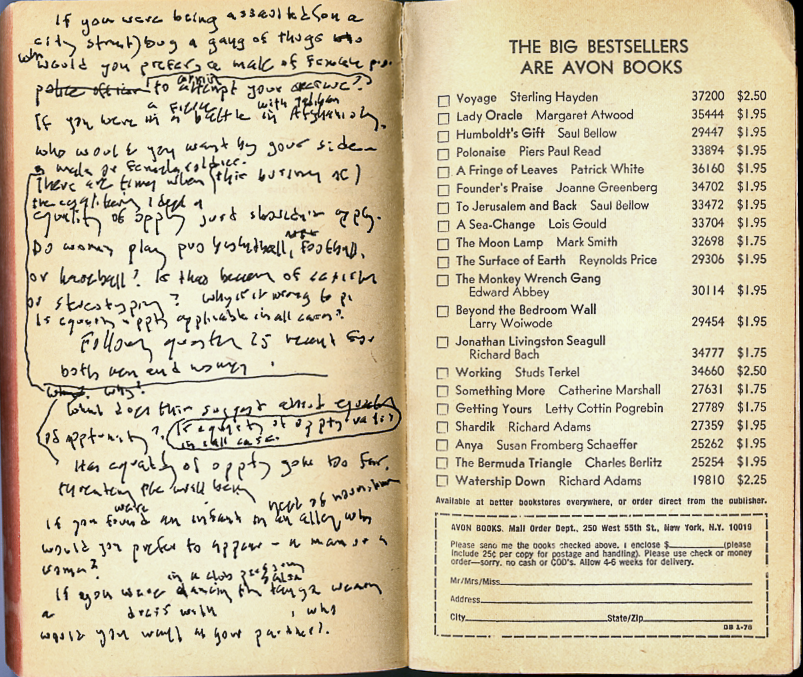 If you were being assaulted (on a
city street) by a gang of thugs who
would you prefer, a male or female
police officer to attempt your rescue?
If you were in a battle in Afghanistan,
who would you want by your side –
a male or female soldier.
There are times when (this business of)
equality of oppty just shouldn't apply.
Do women play pro basketball, football,
or baseball? Is that because of sexism
or stereotyping? Why is it wrong to
Is equality oppty applicable in all cases?
Following question is meant for
both men and women.
Why?
What does this suggest about equality
of opportunity? Is equality of oppty valid
in all cases.
Has equality of oppty gone too far,
threatening the well being
If you found an infant in an alley who
would you prefer to appear – a man or a
woman?
If you were dancing the tango
who
would you want as your partner?
THE BIG BESTSELLERS
ARE AVON BOOKS
Voyage Sterling Hayden 37200 $2.50
Lady Oracle Margaret Atwood 35444 $1.95
Humboldt's Gift Saul Bellow 29447 $1.95
Polonaise Piers Paul Read 33894 $1.95
A Fringe of Leaves Patrick White 36160 $1.95
Founder's Praise Joanne Greenberg 34702 $1.95
To Jerusalem and Back Saul Bellow 33472 $1.95
A Sea-Change Lois Gould 33704 $1.95
The Moon Lamp Mark Smith 32698 $1.75
The Surface of Earth Reynolds Price 29306 $1.95
The Monkey Wrench Gang
Edward Abbey 30114 $1.95
Beyond the Bedroom Wall
Larry Woiwode 29454 $1.95
Jonathan Livingston Seagull
Richard Bach 34777 $1.75
Working Studs Terkel 34660 $2.50
Something More Catherine Marshall 27631 $1.75
Getting Yours Letty Cottin Pogrebin 27789 $1.75
Shardik Richard Adams 27359 $1.95
Anya Susan Fromberg Schaeffer 25262 $1.95
The Bermuda Triangle Charles Berlitz 25254 $1.95
Watership Down Richard Adams 19810 $2.25
Available at better bookstores everywhere, or order direct from the publisher.
AVON BOOKS, Mail Order Dept., 250 West 55th St., New York, N.Y. 10019
Please send me the books checked above. I enclose $ (please
include 25¢ per copy for postage and handling). Please use check or money
order—sorry, no cash or COD's. Allow 4-6 weeks for delivery.
Mr/Mrs/Miss
Address
City State/Zip
BB 1-78